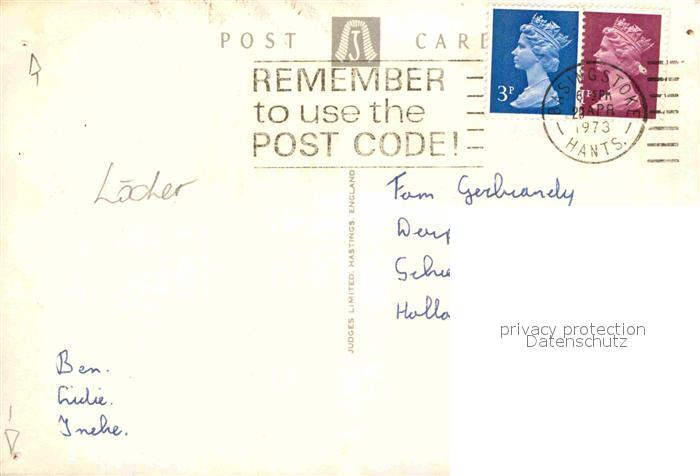 POST CARD
REMEMBER
to use the
POST CODE!
3P
BASINGSTOKE
APR
1973
HANTS.
Löcher
JUDGES LIMITED, HASTINGS, ENGLAND
Fam Gerbrandy
Holla
privacy protection
Datenschutz
Ben.
Lidie.
Ineke.